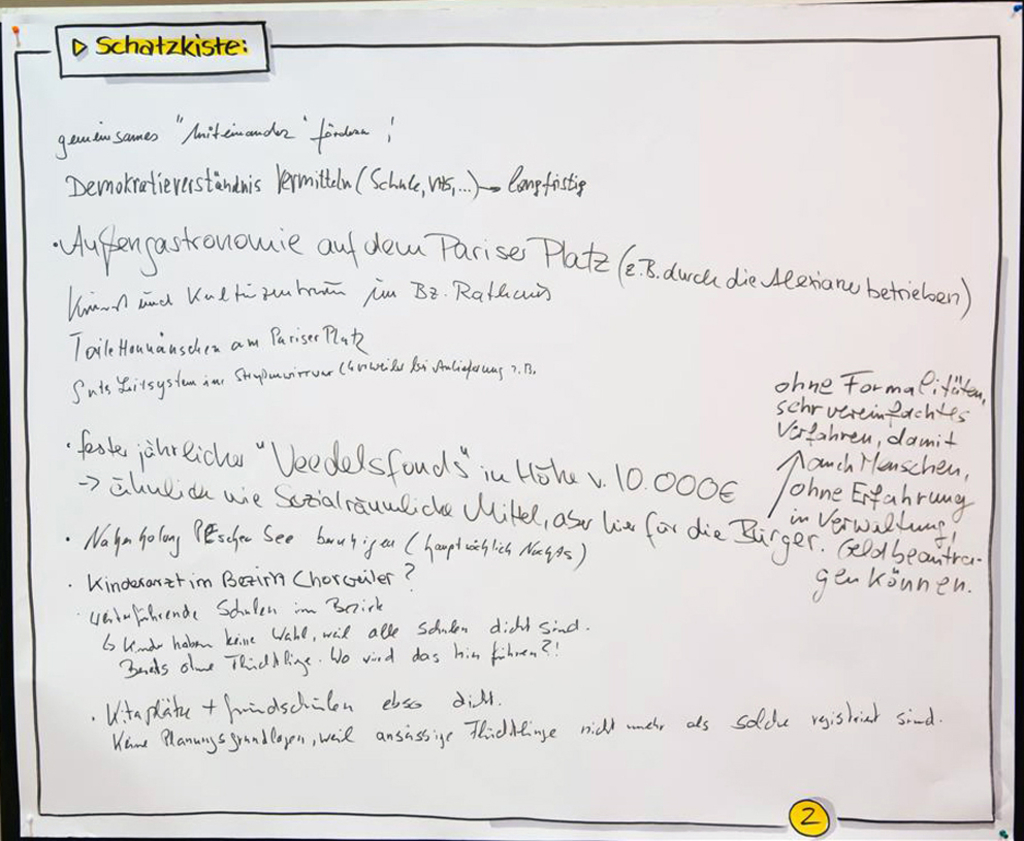 ▷ Schatzkiste:
gemeinsames "Miteinander" fördern !
Demokratieverständnis vermitteln (Schule, VHS, ...) → langfristig
· Außengastronomie auf dem Pariser Platz (z.B. durch die Alexianer betrieben)
Kunst und Kulturzentrum im Bz. Rathaus
Toilettenhäuschen am Pariser Platz
Gutes Leitsystem im Chorweiler bei Anlieferung z.B.
· fester jährlicher "Veedelsfonds" in Höhe v. 10.000€
→ ähnlich wie Sozialräumliche Mittel, aber hier für die Bürger.
ohne Formalitäten,
sehr vereinfachtes
Verfahren, damit
auch Menschen,
ohne Erfahrung
in Verwaltung,
Geld beantra-
gen können.
· Naherholung PEscher See beruhigen (hauptsächlich Nachts)
· Kinderarzt im Bezirk Chorweiler?
· weiterführende Schulen im Bezirk
↳ Kinder haben keine Wahl, weil alle Schulen dicht sind.
Bereits ohne Flüchtlinge. Wo wird das hin führen?!
· Kitaplätze + Grundschulen ebso dicht.
Keine Planungsgrundlagen, weil ansässige Flüchtlinge nicht mehr als solche registriert sind.
2